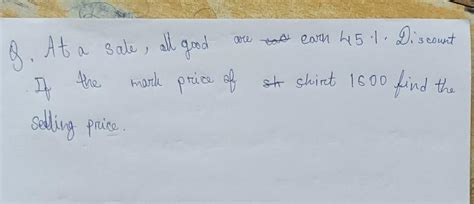 Q. At a sale, all good are earn 45%. Discount
If the mark price of shirt 1600 find the
selling price.